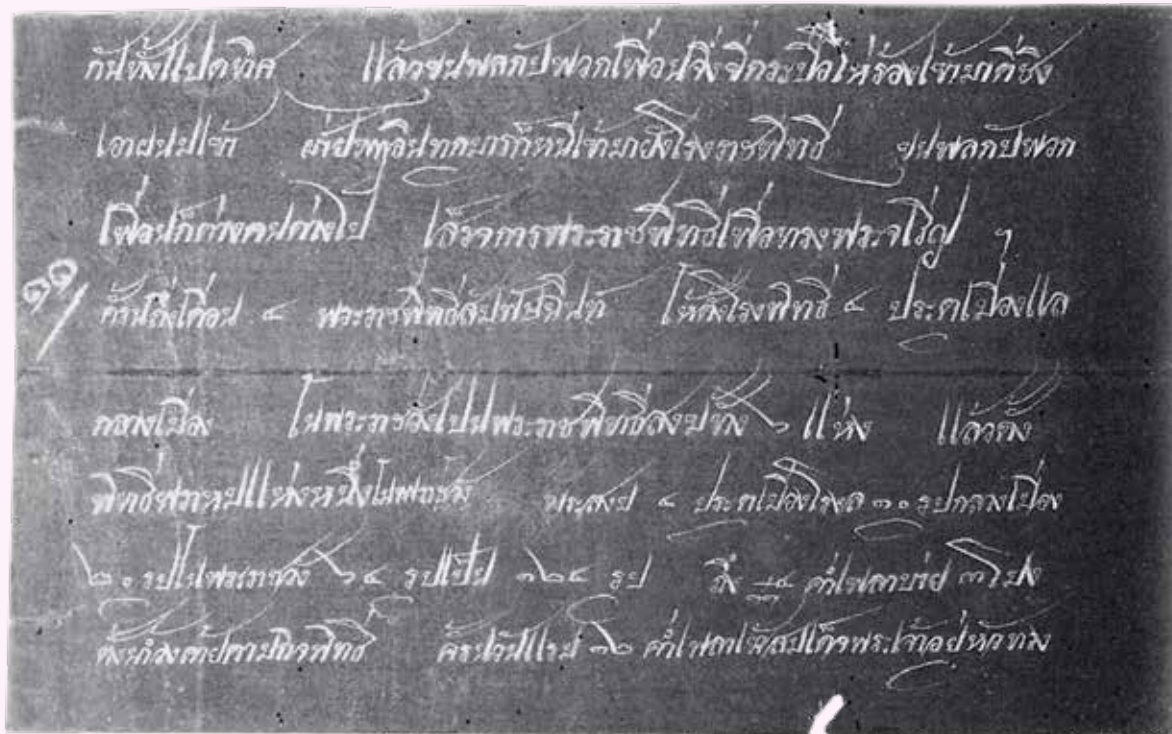 กันทั้งแปดทิศ แล้วขุนพลกับพวกเพื่อนจึ่งขี่กระบือให้ร้องเข้ามาคี่ชิง
เอาฝนปเข้า ก็หนีเข้ามายังโรงราชพิทธี ขุนพลกับพวก
เพื่อนก็ต่างคนต่างไป เสรจการพระราชพิทธีเพื่อทรงพระจเริญ ฯ
๑๑ ครั้นถึงเดือน ๔ พระราชพิทธีสัมพัษฉินท์ ให้ตั้งโรงพิทธี ๔ ประตูเมืองแล
กลางเมือง ในพระราชวังเปนพระราชพิทธีสงฆทัง ๖ แห่ง แล้วตั้ง
พิทธีพราหมแห่งหนึ่งในพระราชวัง พระสงฆ ๔ ประตูเมืองโรงล ๑๐ รูปกลางเมือง
๒๐ รูปในพระราชวัง ๖๔ รูปเปน ๑๒๔ รูป ถึง ค่ำเพลาบ่าย ๓ โมง
ตั้งน้ำวงด้ายตามกิจพิทธี ครั้นวันแรม ๑๒ ค่ำเพลาเช้าสมเด็จพระเจ้าอยู่หัวทรง